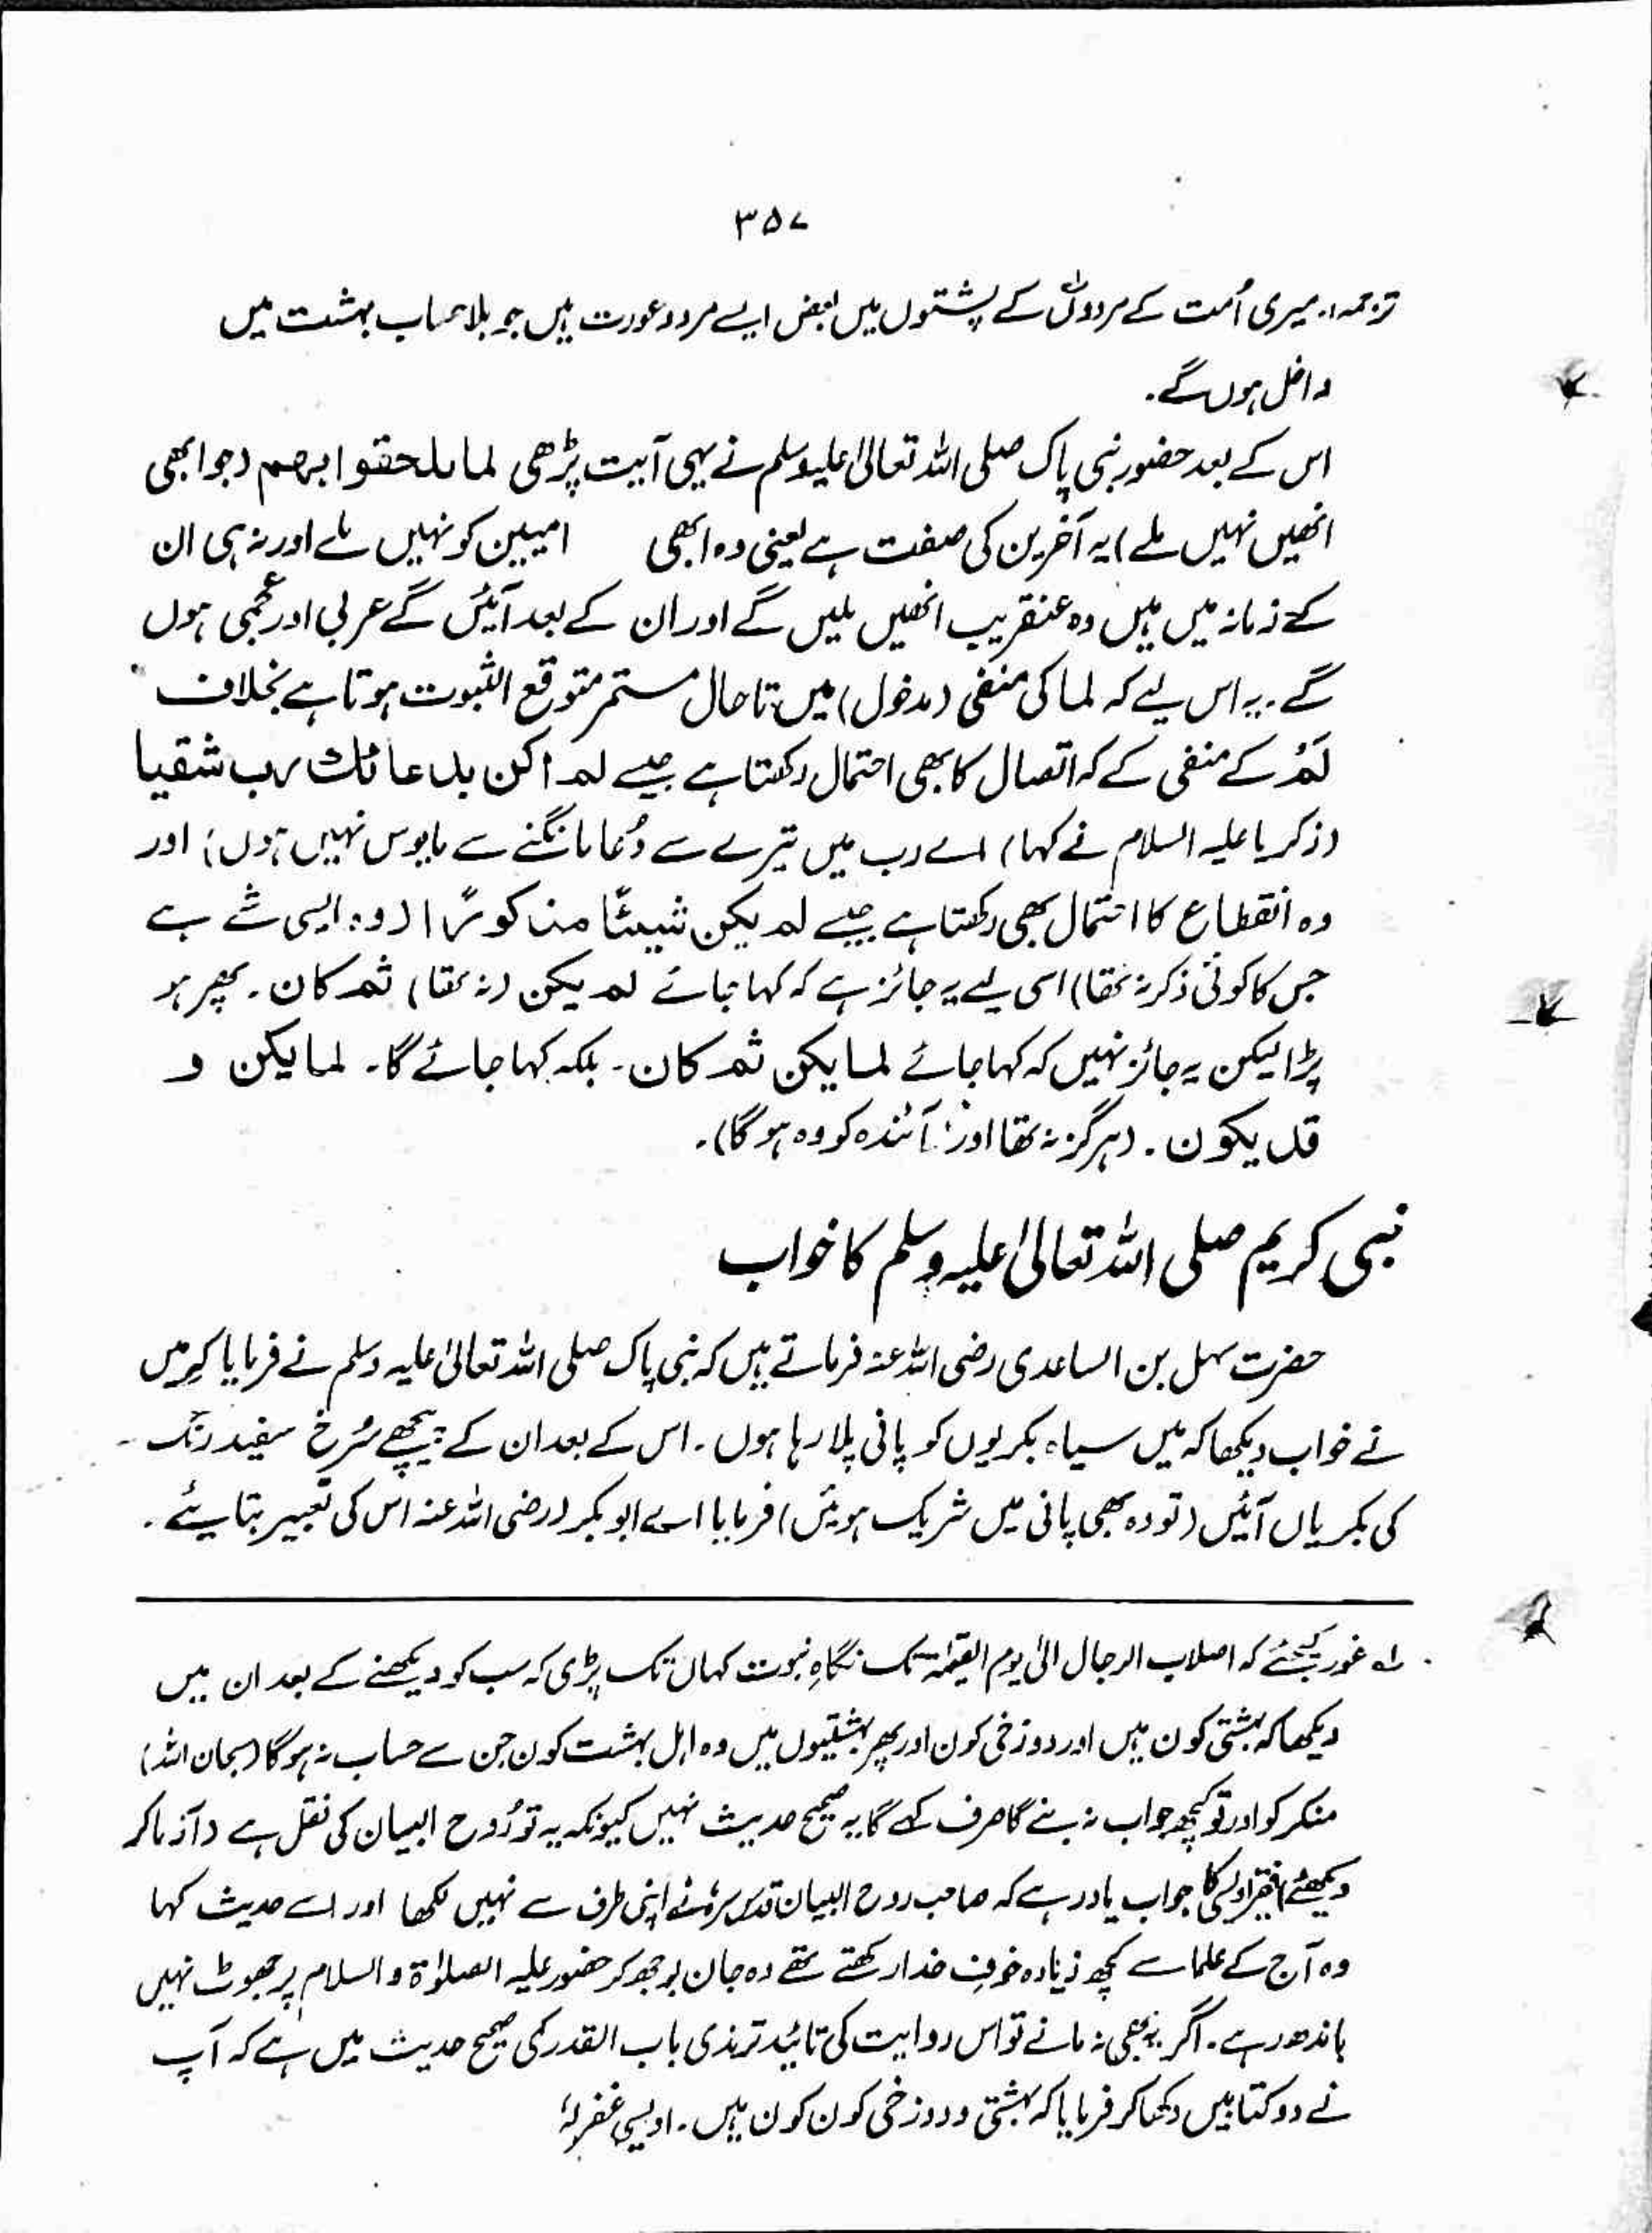 ۳۵۷
ترجمہ:۔ میری اُمت کے مردوں کے پشتوں میں بعض ایسے مرد و عورت ہیں جو بلا حساب بہشت میں
داخل ہوں گے۔
اس کے بعد حضور نبی پاک صلی اللہ تعالیٰ علیہ وسلم نے یہی آیت پڑھی لما یلحقوا بہم (جو ابھی
انھیں نہیں ملے) یہ آخرین کی صفت ہے یعنی وہ ابھی امیین کو نہیں ملے اور نہ ہی ان
کے زمانہ میں ہیں وہ عنقریب انھیں ملیں گے اور ان کے بعد آئیں گے عربی اور عجمی ہوں
گے۔ یہ اس لیے کہ لما کی منفی (مدخول) میں تا حال مستمر متوقع الثبوت ہوتا ہے بخلاف
لَمْ کے منفی کے کہ اتصال کا بھی احتمال رکھتا ہے جیسے لم اکن بدعائك رب شقیا
(زکریا علیہ السلام نے کہا) اے رب میں تیرے سے دُعا مانگنے سے مایوس نہیں ہوں) اور
وہ انقطاع کا احتمال بھی رکھتا ہے جیسے لم یکن شیئًا مذکورًا (وہ ایسی شے ہے
جس کا کوئی ذکر نہ تھا) اسی لیے یہ جائز ہے کہ کہا جائے لم یکن (نہ تھا) ثم کان۔ پھر ہو
پڑا لیکن یہ جائز نہیں کہ کہا جائے لما یکن ثم کان۔ بلکہ کہا جائے گا۔ لما یکن و
قد یکون۔ (ہرگز نہ تھا اور آئندہ کو وہ ہو گا)۔
نبی کریم صلی اللہ تعالیٰ علیہ وسلم کا خواب
حضرت سہل بن الساعدی رضی اللہ عنہ فرماتے ہیں کہ نبی پاک صلی اللہ تعالیٰ علیہ وسلم نے فرمایا کہ میں
نے خواب دیکھا کہ میں سیاہ بکریوں کو پانی پلا رہا ہوں۔ اس کے بعد ان کے پیچھے سُرخ سفید رنگ
کی بکریاں آئیں (تو وہ بھی پانی میں شریک ہوئیں) فرمایا اے ابوبکر (رضی اللہ عنہ اس کی تعبیر بتایئے۔
لہ غور کیجئے کہ اصلاب الرجال الیٰ یوم القیٰمۃ تک نگاہِ نبوت کہاں تک پڑی کہ سب کو دیکھنے کے بعد ان میں
دیکھا کہ بہشتی کون ہیں اور دوزخی کون اور پھر بہشتیوں میں وہ اہل بہشت کون جن سے حساب نہ ہو گا (سبحان اللہ)
منکر کو اور تو کچھ جواب نہ بنے گا صرف کہے گا یہ صحیح حدیث نہیں کیونکہ یہ تو رُوح البیان کی نقل ہے (آزما کر
دیکھئے) فقیر اویسی کا جواب یاد رہے کہ صاحب روح البیان قدس سرہٗ نے اپنی طرف سے نہیں لکھا اور اسے حدیث کہا
وہ آج کے علما سے کچھ زیادہ خوفِ خدا رکھتے تھے وہ جان بوجھ کر حضور علیہ الصلوٰۃ و السلام پر جھوٹ نہیں
باندھ رہے۔ اگر پھر بھی نہ مانے تو اس روایت کی تائید ترمذی باب القدر کی صحیح حدیث میں ہے کہ آپ
نے دو کتابیں دکھا کر فرمایا کہ بہشتی و دوزخی کون کون ہیں۔ اویسی غفرلہٗ